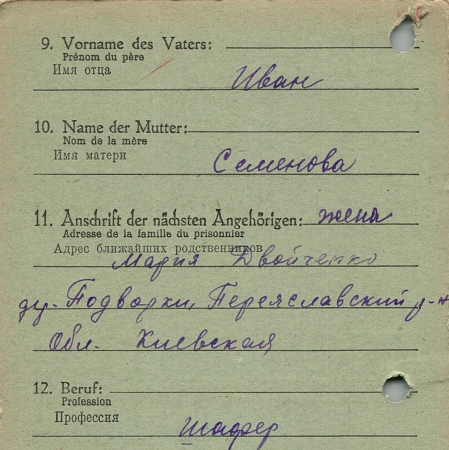 9. Vorname des Vaters:
Prénom du père
Имя отца
Иван
10. Name der Mutter:
Nom de la mère
Имя матери
Семенова
11. Anschrift der nächsten Angehörigen: жена
Adresse de la famille du prisonnier
Адрес ближайших родственников
Мария Двойченко
Подворки, Переяславский р-н
Обл. Киевская
12. Beruf:
Profession
Профессия
шофер